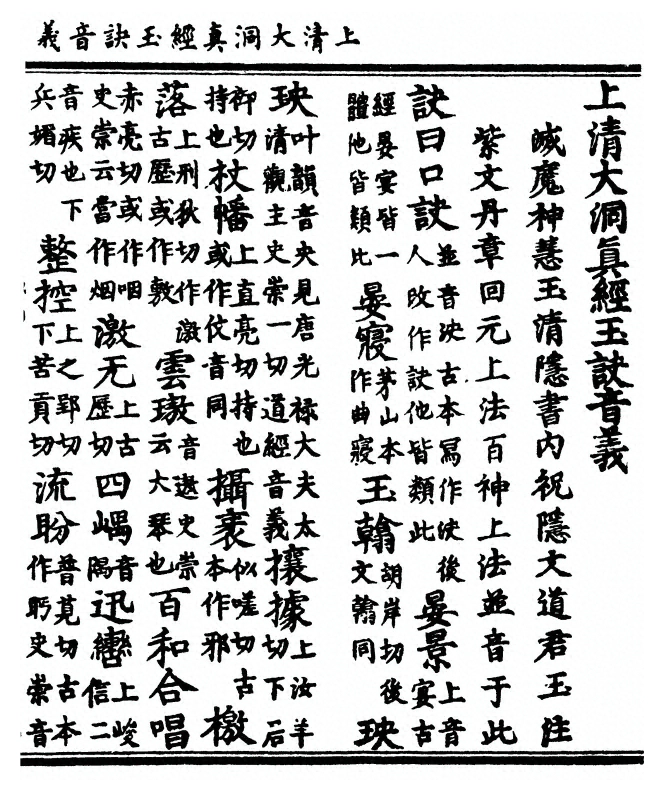 上清大洞真經玉訣音義
上清大洞眞經玉訣音義
滅魔神慧玉清隱書内祝隱文道君玉注
紫文丹章回元上法百神上法並音于此
訣曰口訣並音決古本冩作決後人改作訣他皆類此晏景上音宴古
經晏宴皆一體他皆類比晏寢茅山本作曲寢玉翰胡岸切後文翰同玦
玦叶韻音央見唐光禄大夫太清觀主史崇一切道經音義攘據上汝羊切下居
御切持也杖幡上直亮切持也或作仗音同攝袤似嗟切古本作邪檄
落上刑狄切作激古歷或作敫雲璈音遨史崇云大琴也百和合唱
赤亮切或作咽史崇云當作烟激无上古歷切四嵎音隅迅轡上峻信二
音疾也下兵媚切整控上之郢切下苦貢切流盼普莧切古本作眄史崇音